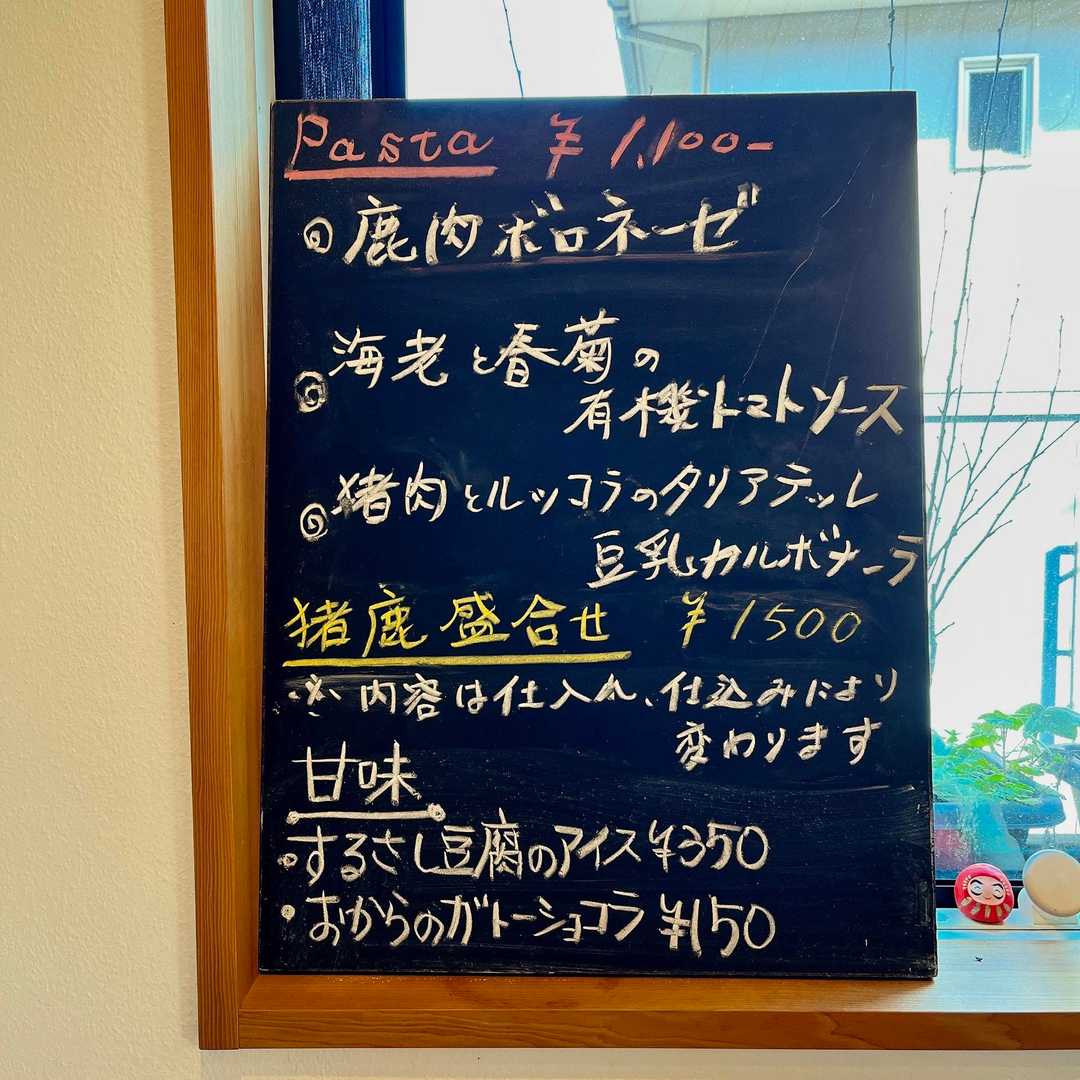 Pasta ¥1,100-
◎鹿肉ボロネーゼ
◎海老と春菊の
有機トマトソース
◎猪肉とルッコラのタリアテッレ
豆乳カルボナーラ
猪鹿盛合せ ¥1500
※内容は仕入れ、仕込みにより
変わります
甘味
・するさし豆腐のアイス ¥350
・おからのガトーショコラ ¥150